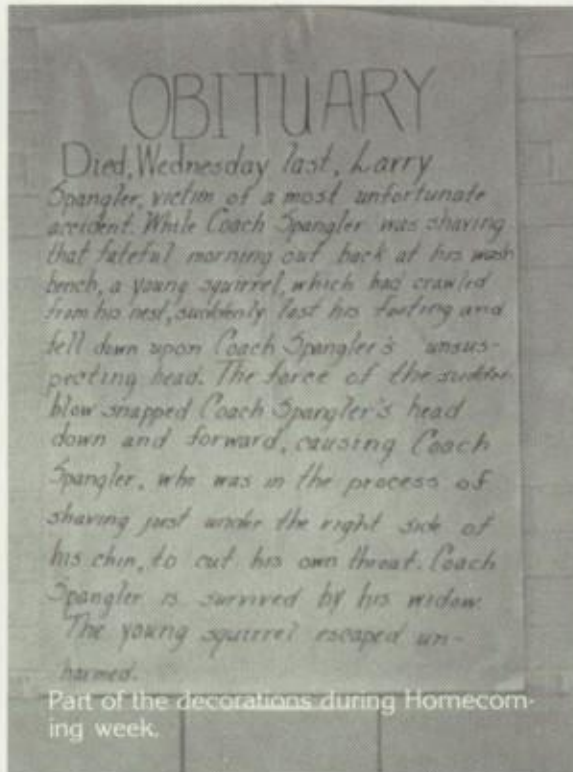 OBITUARY
Died, Wednesday last, Larry
Spangler, victim of a most unfortunate
accident. While Coach Spangler was shaving
that fateful morning out back at his wash
bench, a young squirrel, which had crawled
from his nest, suddenly lost his footing and
fell down upon Coach Spangler's unsus-
pecting head. The force of the sudden
blow snapped Coach Spangler's head
down and forward, causing Coach
Spangler, who was in the process of
shaving just under the right side of
his chin, to cut his own throat. Coach
Spangler is survived by his widow.
The young squirrel escaped un-
harmed.
Part of the decorations during Homecom-
ing week.